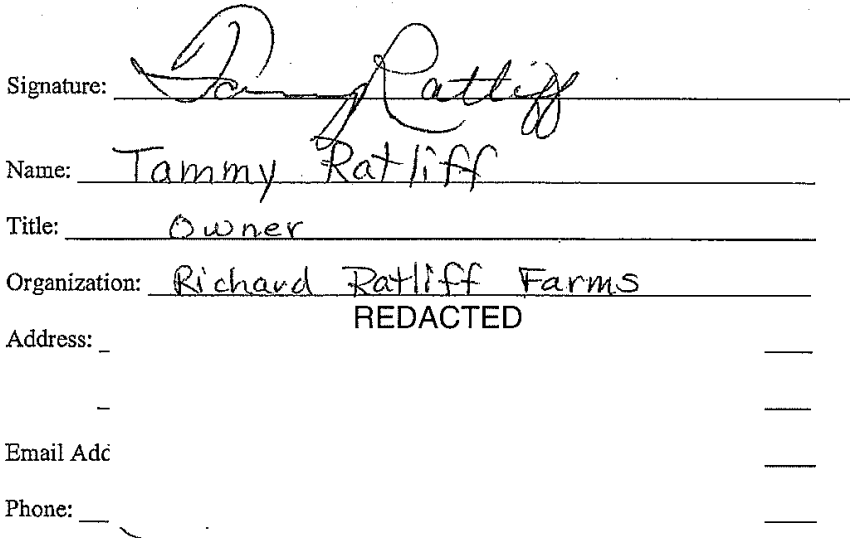 Signature: Tammy Ratliff
Name: Tammy Ratliff
Title: Owner
Organization: Richard Ratliff Farms
REDACTED
Address:
Email Add
Phone: